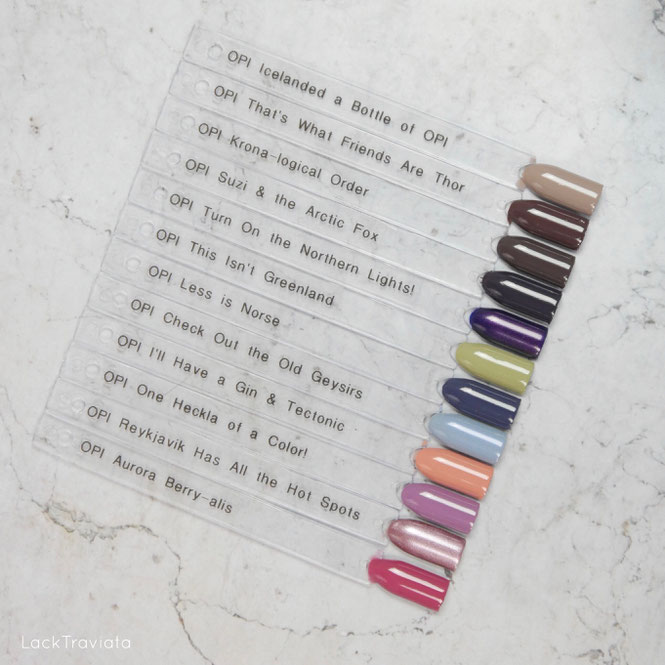 OPI Icelanded a Bottle of OPI
OPI That's What Friends Are Thor
OPI Krona-logical Order
OPI Suzi & the Arctic Fox
OPI Turn On the Northern Lights!
OPI This Isn't Greenland
OPI Less is Norse
OPI Check Out the Old Geysirs
OPI I'll Have a Gin & Tectonic
OPI One Heckla of a Color!
OPI Reykjavik Has All the Hot Spots
OPI Aurora Berry-alis
LackTraviata